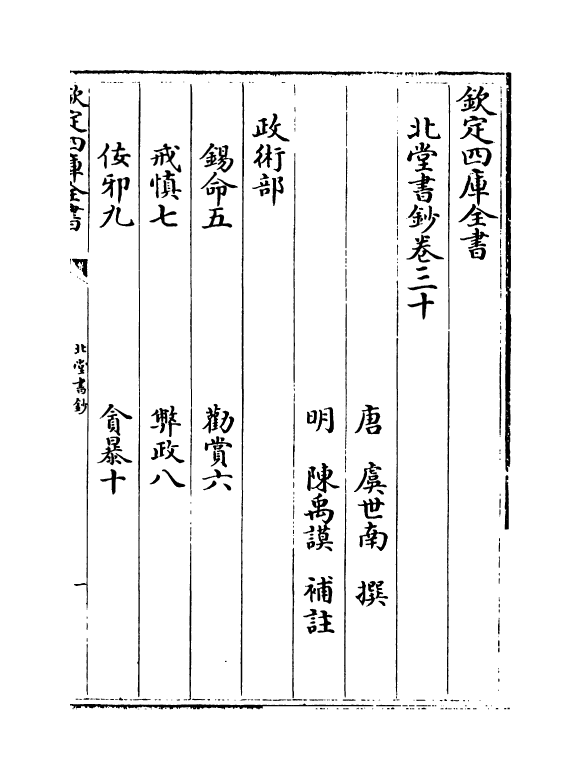 欽定四庫全書
北堂書鈔卷三十
唐 虞世南 撰
明 陳禹謨 補註
政術部
錫命五 勸賞六
戒慎七 弊政八
佞邪九 貪暴十
欽定四庫全書 北堂書鈔 一